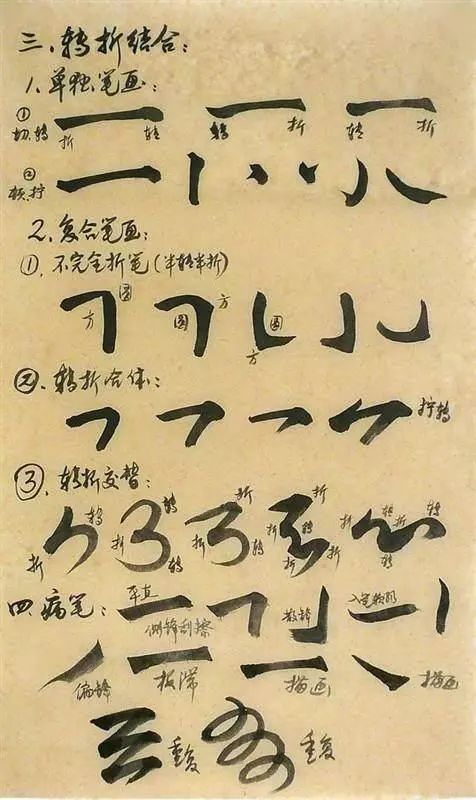 三、转折结合：
1.单独笔画：
①切.转 折 转 转 折 转 折
②顿.拧
2.复合笔画：
①.不完全折笔（半转半折）
方 圆 圆 方 圆 方
②.转折合体：
拧转
③.转折交替：
折 转 折 转 转 折 折 转 折 折 转 折 折 转 折 转 转
四.病笔：
平直 侧锋刮擦 散锋
偏锋 板滞 描画 描画
重复 重复